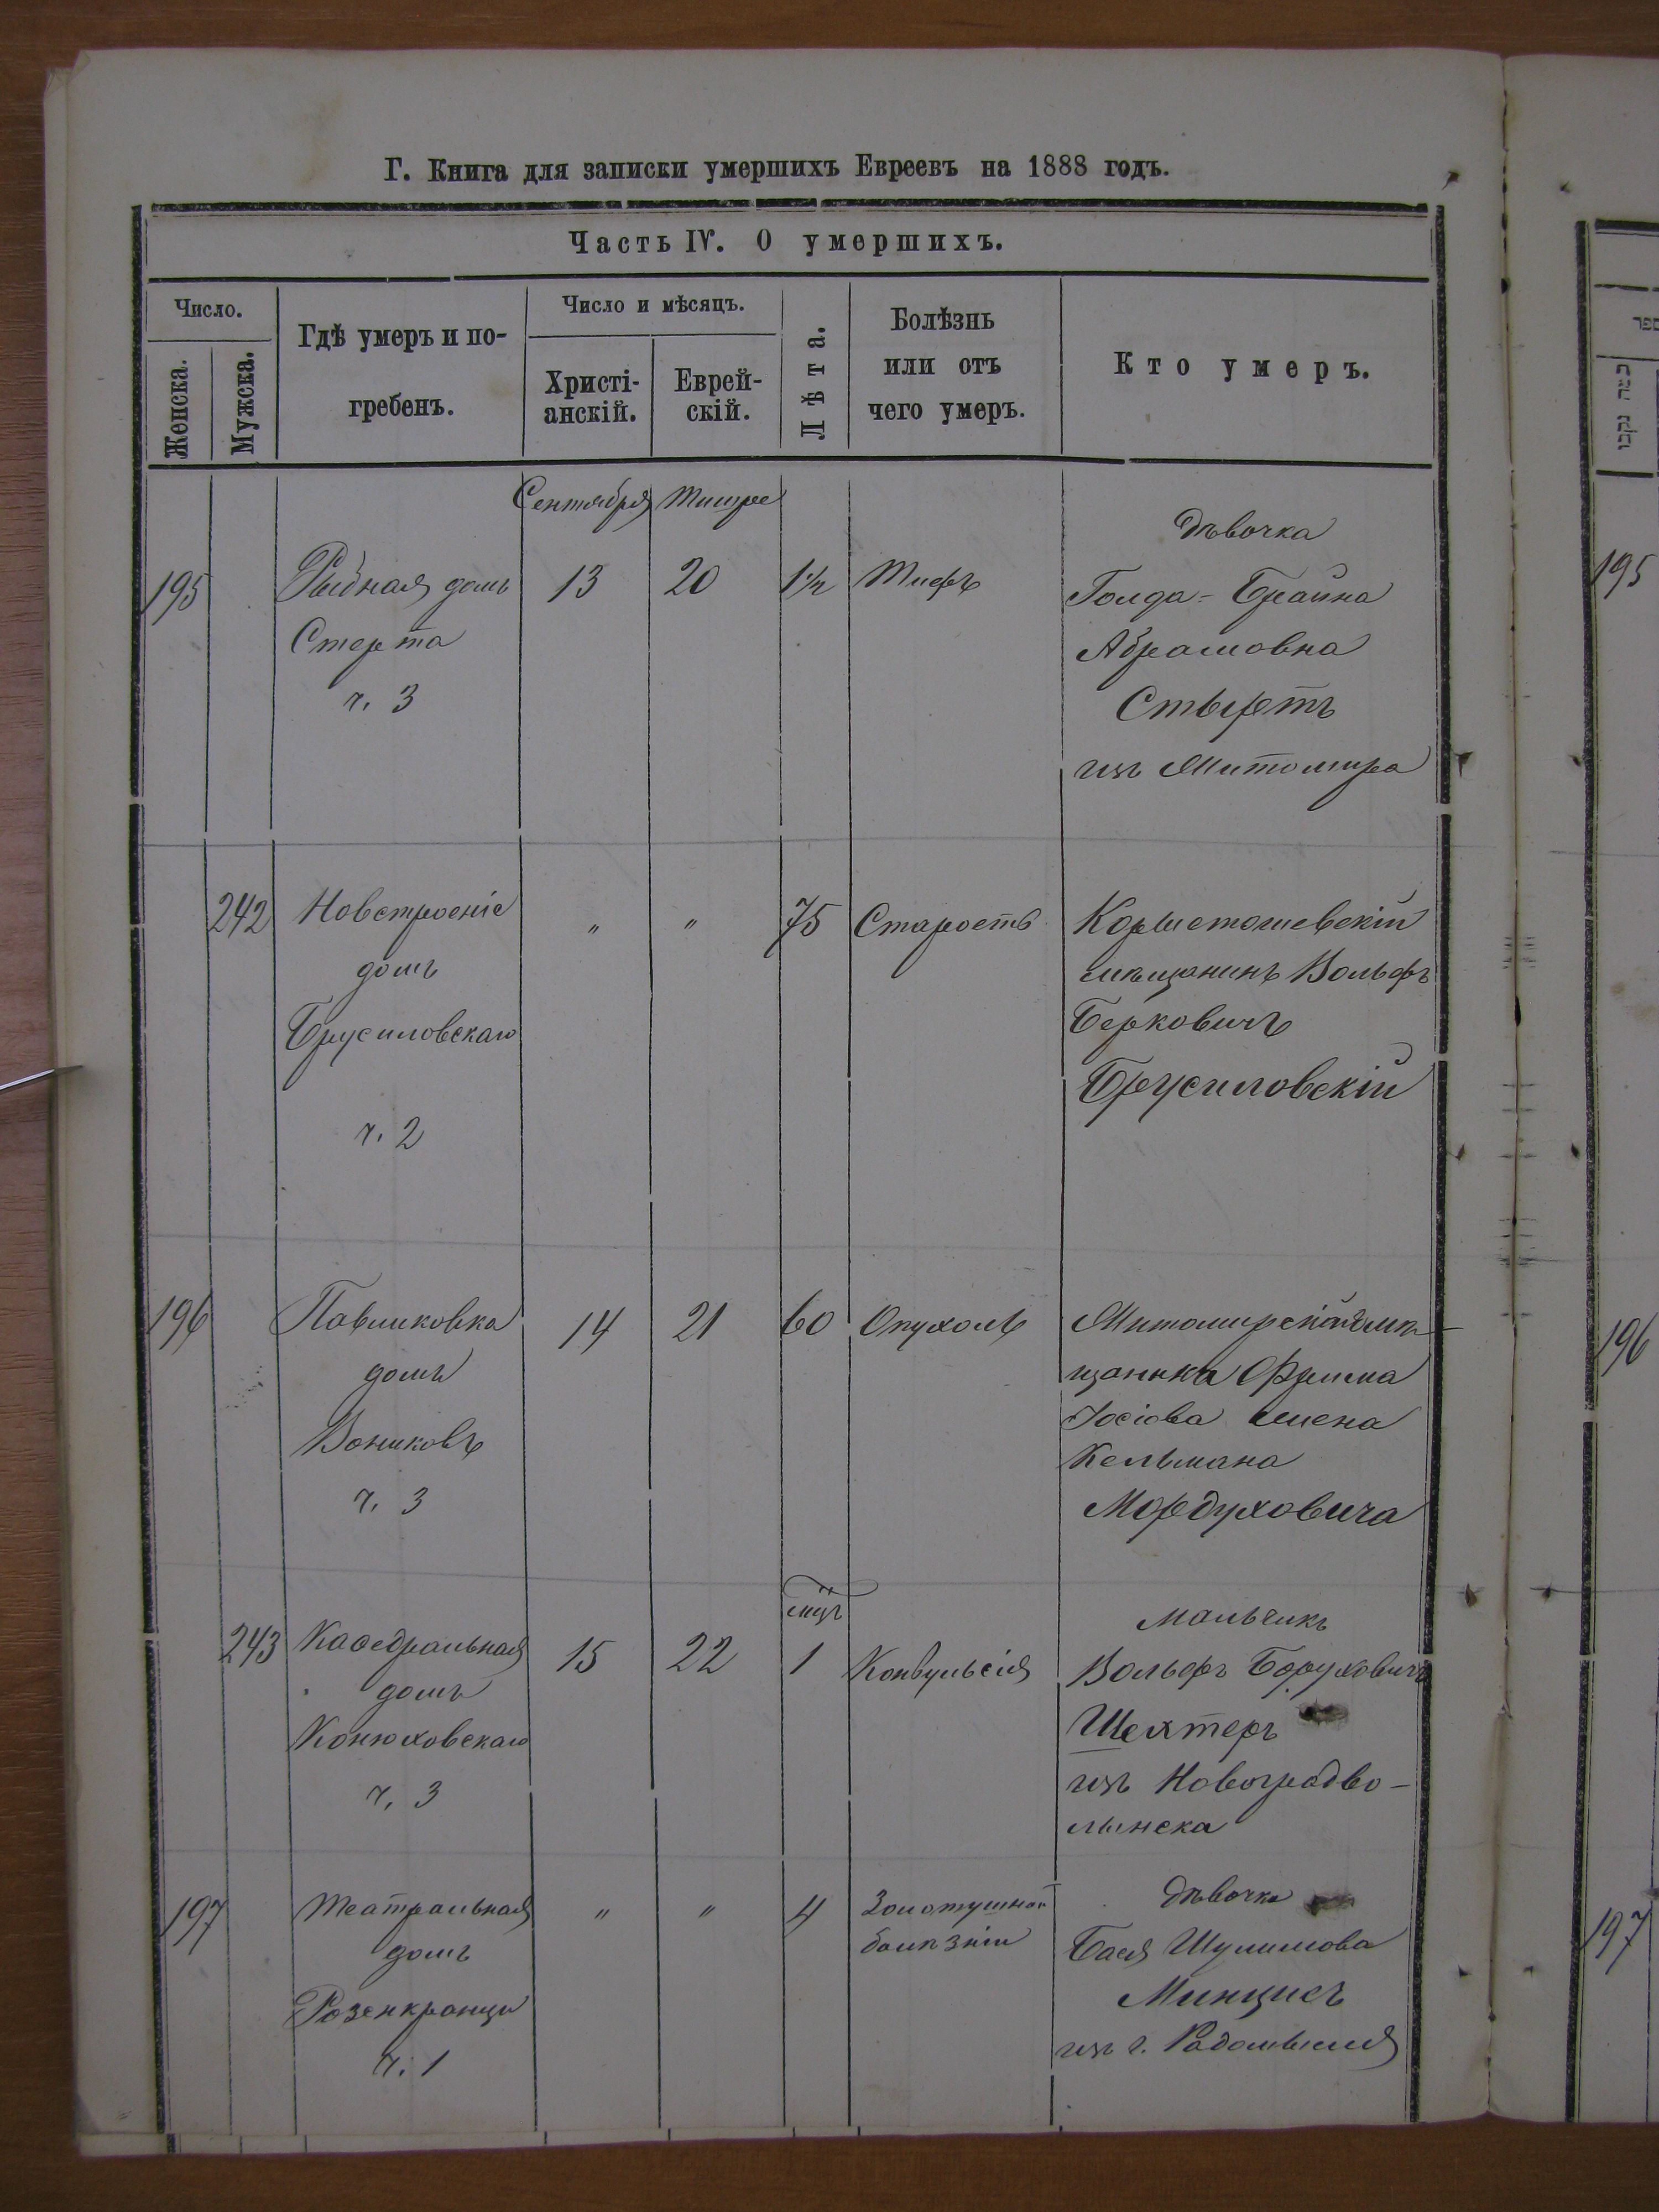 Г. Книга для записки умершихъ Евреевъ на 1888 годъ.
Часть IV. О умершихъ.
Число.
Женска.
Мужска.
Гдѣ умеръ и по-
гребенъ.
Число и мѣсяцъ.
Христі-
анскій.
Еврей-
скій.
Лѣта.
Болѣзнь
или отъ
чего умеръ.
Кто умеръ.
Сентября Тишре
195
Рыбная домъ
Стерта
ч. 3
13
20
1½
Тифъ
дѣвочка
Голда-Брайна
Абрамовна
Стыртъ
изъ Житомира
242
Новстроеніе
домъ
Брусиловскаго
ч. 2
"
"
75
Старость
мѣщанинъ Вольфъ
Берковичъ
Брусиловскій
196
Павликовка
домъ
ч. 3
14
21
60
Опухоль
щанка Фрима
Іосіова жена
Кельмана
Мордуховича
243
Каѳедральная
домъ
Конюховскаго
ч. 3
15
22
мцъ
1
Конвульсія
Мальчикъ
Вольфъ Боруховичъ
Шехтеръ
изъ Новоградво-
лынска
197
Театральная
домъ
Розенкранци
ч. 1
"
"
4
Золотушной
болѣзніи
дѣвочка
Бася Шулимова
Минцисъ
изъ г. Радомысля
195
196
197